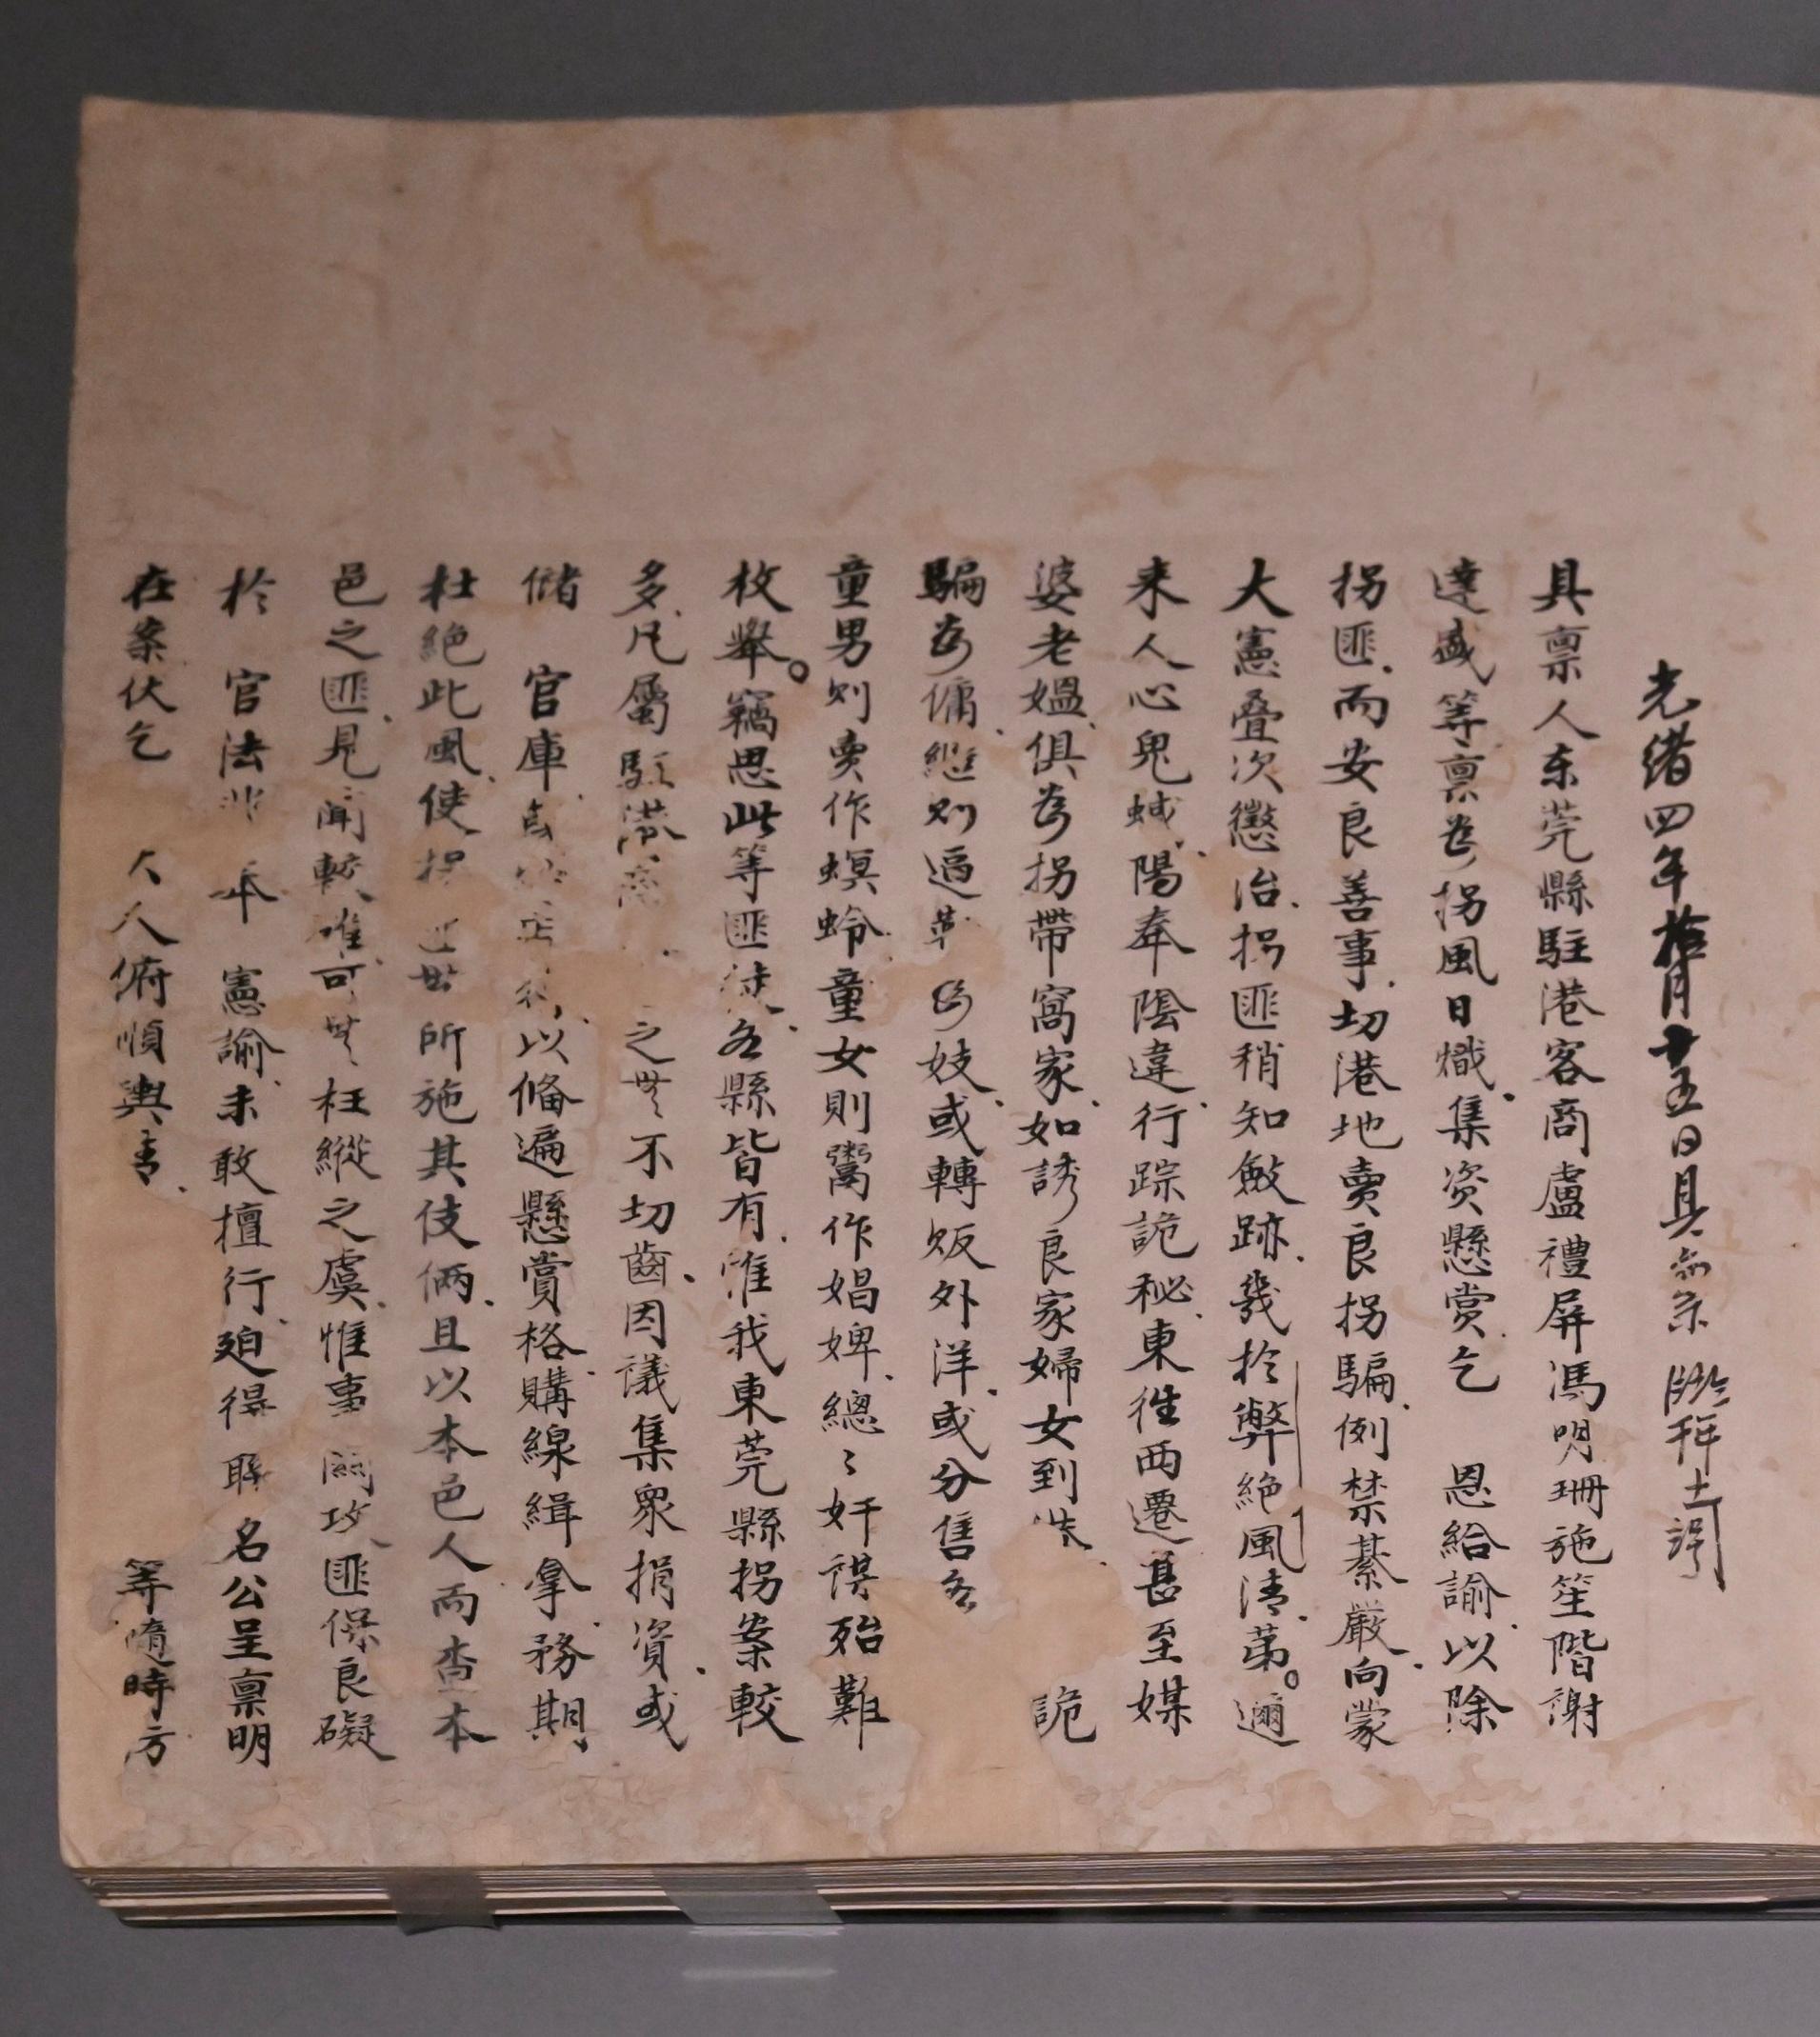 光緒四年拾月十五日具
具禀人東莞縣駐港客商盧禮屏馮明珊施笙階謝
達盛等禀為拐風日熾集資懸賞乞 恩給諭以除
拐匪而安良善事切港地賣良拐騙例禁綦嚴向蒙
大憲叠次懲治拐匪稍知斂跡幾於弊絶風清第邇
来人心鬼蜮陽奉陰違行踪詭秘東徃西遷甚至媒
婆老媪俱為拐帶窩家如誘良家婦女到港 詭
騙為傭繼則逼勒為妓或轉販外洋或分售各
童男則賣作螟蛉童女則鬻作娼婢總々奸謀殆難
枚舉竊思此等匪徒各縣皆有惟我東莞縣拐案較
多凡屬駐港商 之無不切齒因議集衆捐資或
儲 官庫 以俻遍懸賞格購線緝拿務期
杜絶此風使拐 無所施其伎俩且以本邑人而查本
邑之匪見聞較確可無枉縱之虞惟事關攻匪保良礙
於 官法非奉 憲諭未敢擅行廹得聯名公呈禀明
在案伏乞 大人俯順輿 等随時方